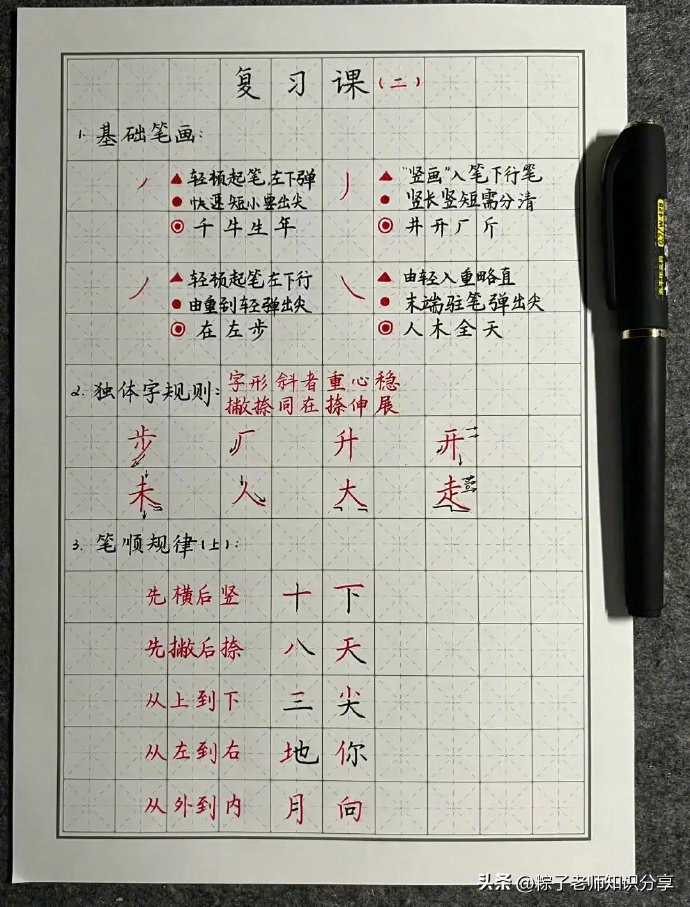 复习课(二)
1. 基础笔画:
轻顿起笔,左下弹
快速短小要出尖
千牛生年
"竖画"入笔下行笔
竖长竖短需分清
井开厂斤
轻顿起笔左下行
由重到轻弹出尖
在左步
由轻入重略直
末端驻笔弹出尖
人木全天
2. 独体字规则:
字形斜者重心稳
撇捺同在捺伸展
步 厂 升 开
未 人 大 走
3. 笔顺规律(上):
先横后竖 十 下
先撇后捺 八 天
从上到下 三 尖
从左到右 地 你
从外到内 月 向
头条 @粽子老师知识分享